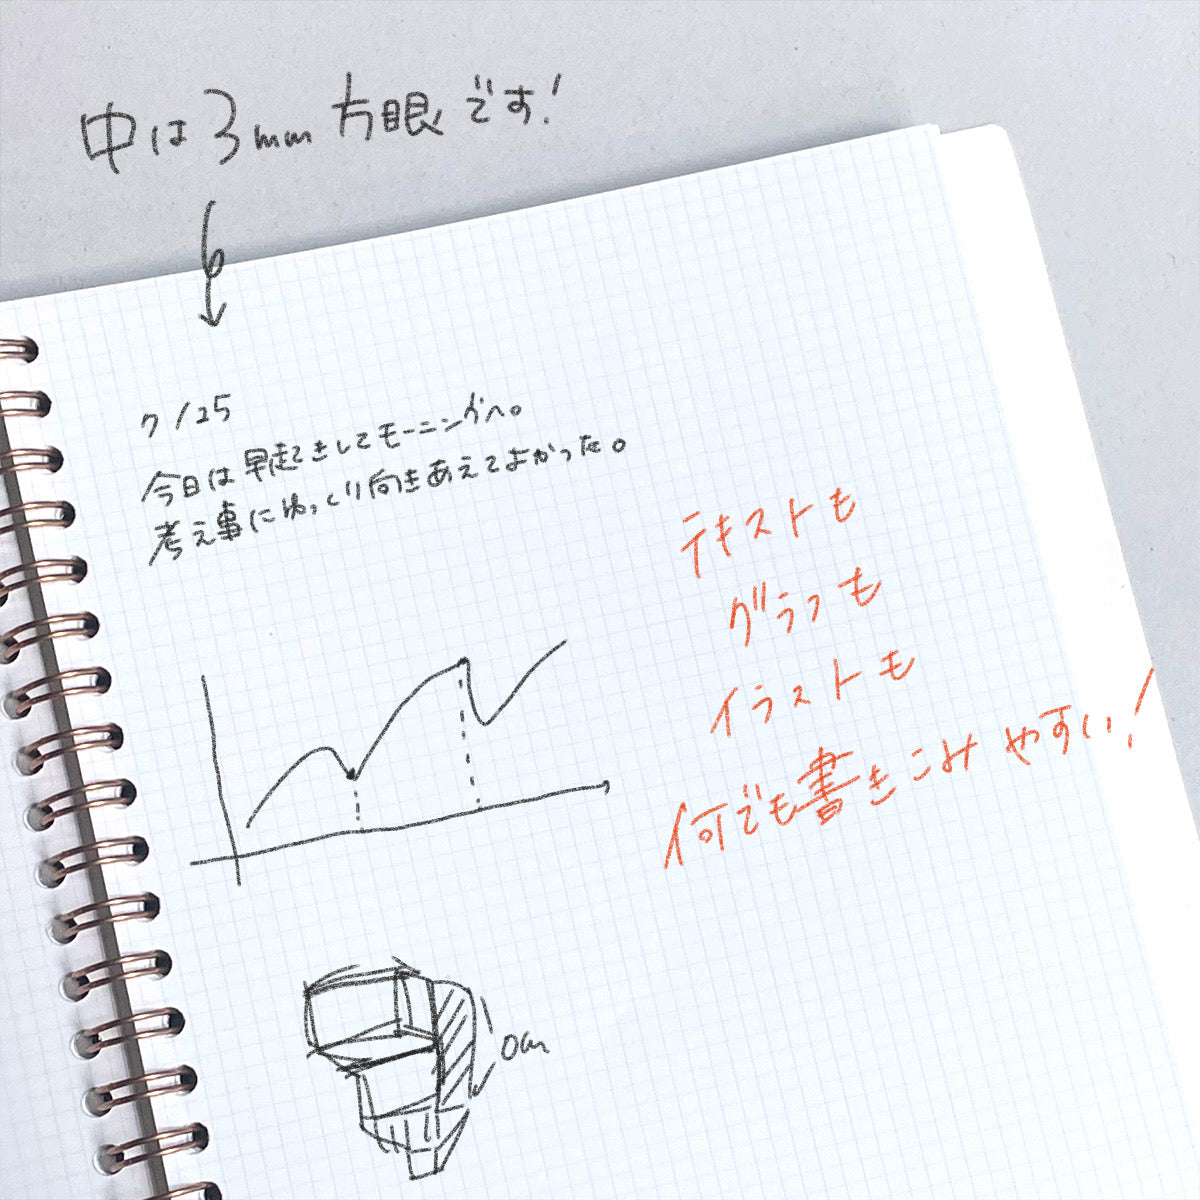 中は3mm方眼です!
7/25
今日は早起きしてモーニングへ。
考え事にゆっくり向きあえてよかった。
テキストも
グラフも
イラストも
何でも書きこみやすい!
0cm